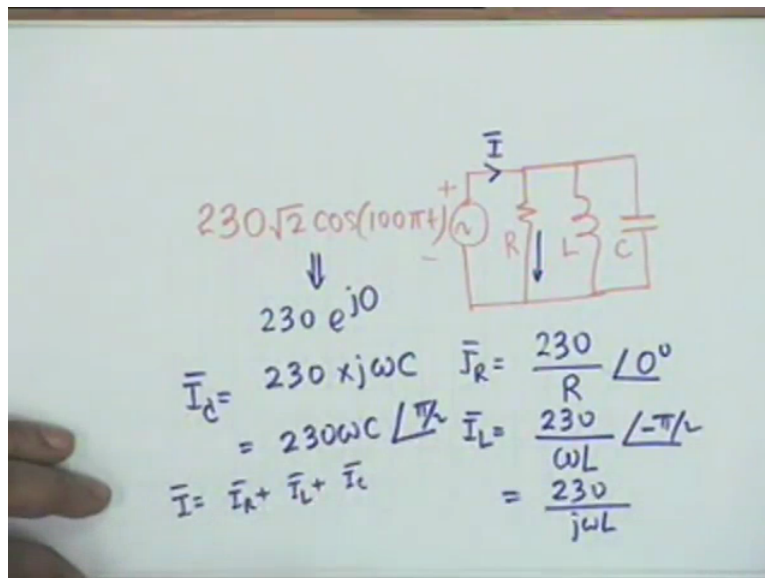 Ī
+
230√2 cos(100πt) ~
-
R L C
⇓
230 e^j0
Ī_C = 230 × jωC
= 230ωC ∠π/2
Ī = Ī_R + Ī_L + Ī_C
Ī_R = 230/R ∠0°
Ī_L = 230/ωL ∠-π/2
= 230/jωL